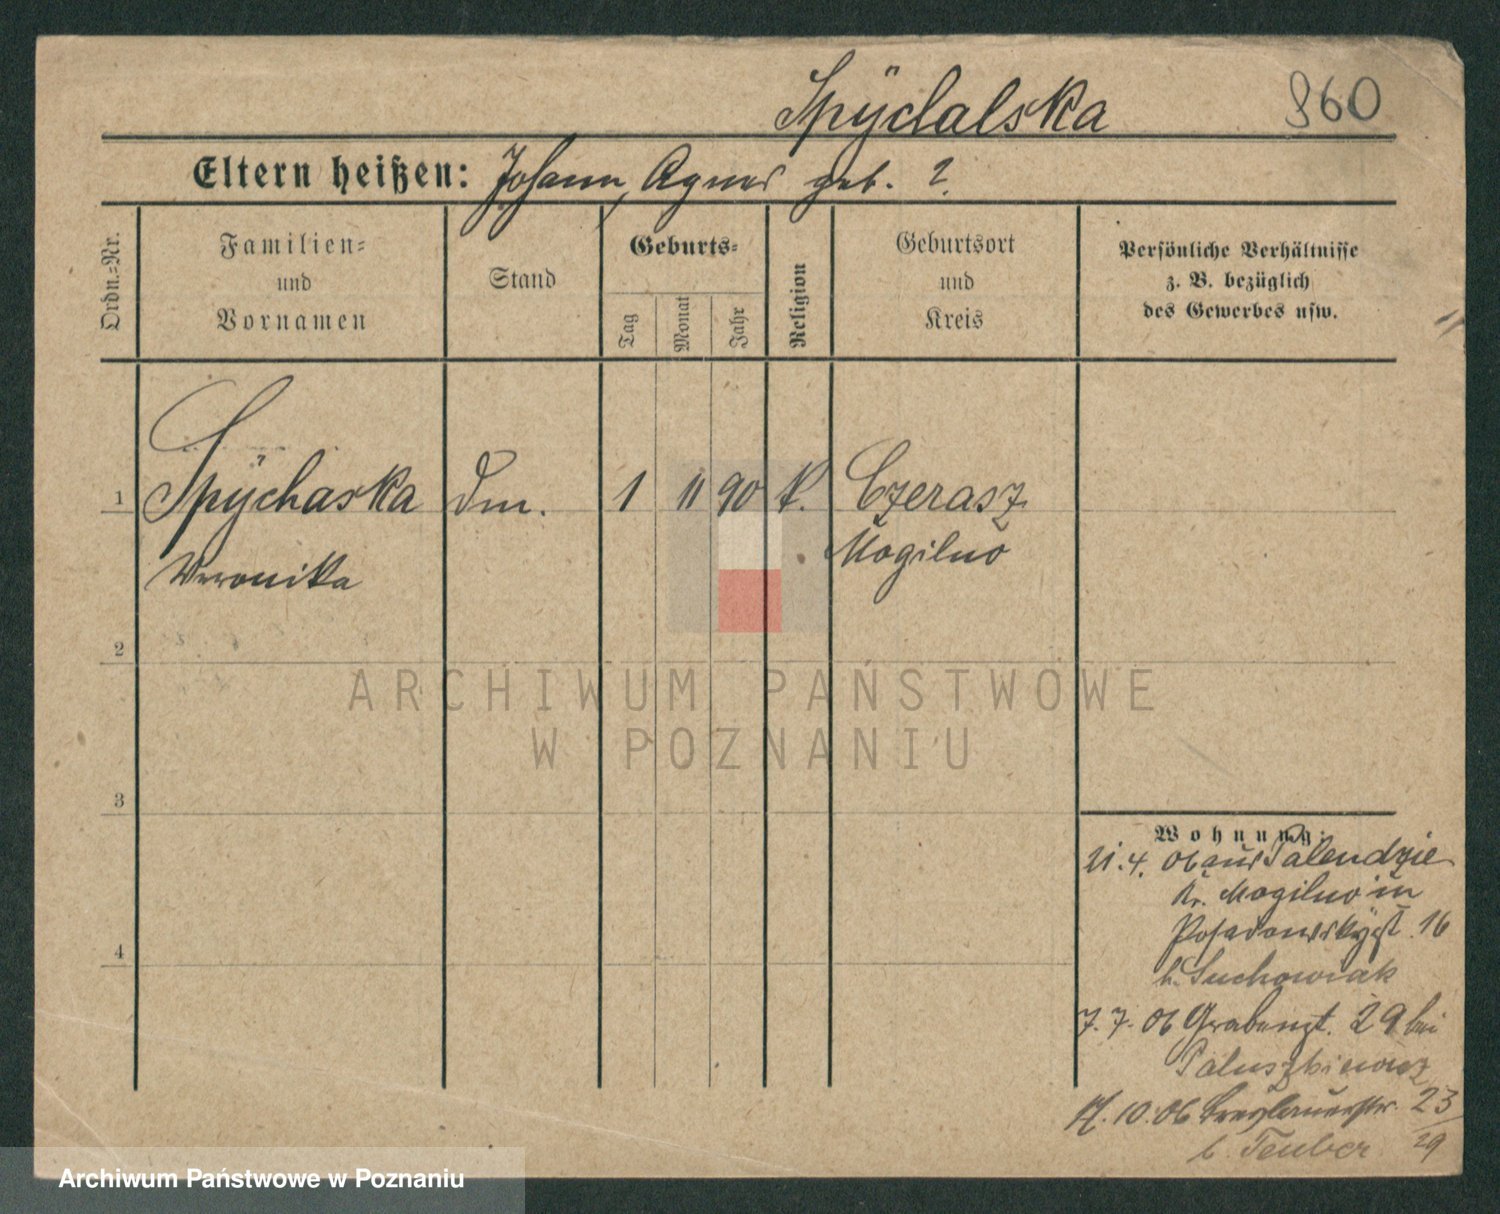 Spÿchalska
960
Eltern heißen: Johann, Agnes geb. ?
Ordn.=Nr.
Familien=
und
Vornamen
Stand
Geburts=
Tag
Monat
Jahr
Religion
Geburtsort
und
Kreis
Persönliche Verhältnisse
z. B. bezüglich
des Gewerbes usw.
1 Spÿchaska Dm. 1 11 90 k. Czerasz
Mogilno
Veronika
2
3
4
Wohnung:
21.4. 06 aus Palendzie
Kr. Mogilno in
Posadowskyst. 16
b. Suchowiak
7. 7. 06 Grabenst. 29 bei
Paluszkiewicz
17. 10. 06 Breslauerstr. 23/29
b. Teuber
ARCHIWUM PAŃSTWOWE
W POZNANIU
Archiwum Państwowe w Poznaniu